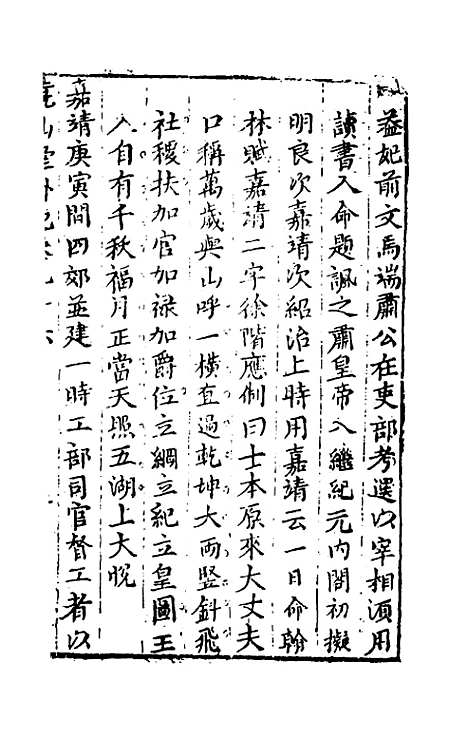 益妃前文馬端肅公在吏部考選以宰相須用
讀書人命題諷之肅皇帝入繼紀元内閣初擬
明良次嘉靖次紹治上時用嘉靖云一日命翰
林賦嘉靖二字徐階應制曰士本原來大丈夫
口稱萬歲與山呼一橫直過乾坤大兩豎斜飛
社稷扶加官加禄加爵位立綱立紀立皇圖王
人自有千秋福月正當天照五湖上大悦
嘉靖庚寅間四郊並建一時工部司官督工者以
堯山堂外紀卷九十六